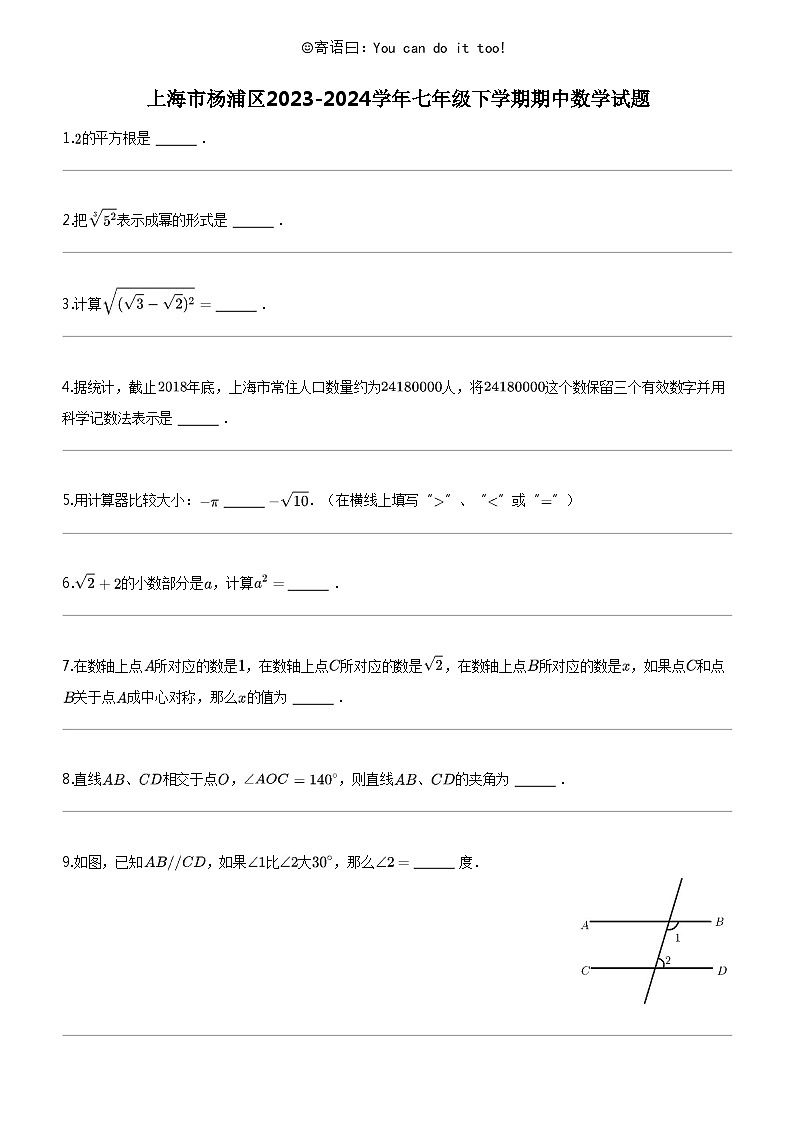 ☺寄语曰：You can do it too!
上海市杨浦区2023-2024学年七年级下学期期中数学试题
1.2的平方根是 ______ .
2.把∛5²表示成幂的形式是 ______ .
3.计算√(√3 − √2)² = ______ .
4.据统计，截止2018年底，上海市常住人口数量约为24180000人，将24180000这个数保留三个有效数字并用
科学记数法表示是 ______ .
5.用计算器比较大小：−π ______ −√10.（在横线上填写“>”、“<”或“=”）
6.√2 + 2的小数部分是a，计算a² = ______ .
7.在数轴上点A所对应的数是1，在数轴上点C所对应的数是√2，在数轴上点B所对应的数是x，如果点C和点
B关于点A成中心对称，那么x的值为 ______ .
8.直线AB、CD相交于点O，∠AOC = 140°，则直线AB、CD的夹角为 ______ .
9.如图，已知AB//CD，如果∠1比∠2大30°，那么∠2 = ______ 度.
A B
1
2
C D